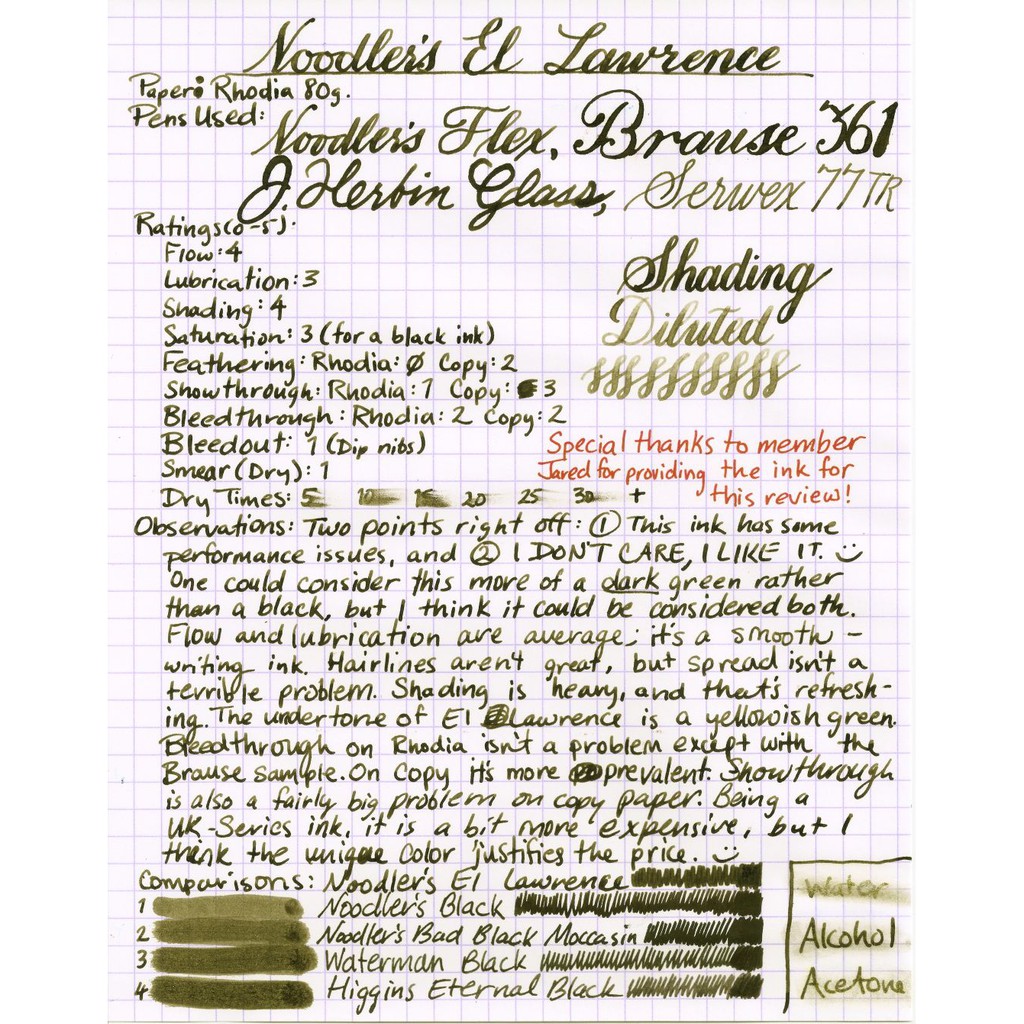 Noodler's El Lawrence
Paper: Rhodia 80g.
Pens Used:
Noodler's Flex, Brause 361
J. Herbin Glass, Serwex 77TR
Ratings(0-5):
Flow: 4
Lubrication: 3
Shading: 4
Saturation: 3 (for a black ink)
Feathering: Rhodia: Ø Copy: 2
Showthrough: Rhodia: 1 Copy: 3
Bleedthrough: Rhodia: 2 Copy: 2
Bleedout: 1 (Dip nibs)
Smear (Dry): 1
Dry Times: 5 10 15 20 25 30 +
Shading
Diluted
Special thanks to member
Jared for providing the ink for
this review!
Observations: Two points right off: ① This ink has some
performance issues, and ② I DON'T CARE, I LIKE IT. :)
One could consider this more of a dark green rather
than a black, but I think it could be considered both.
Flow and lubrication are average; it's a smooth-
writing ink. Hairlines aren't great, but spread isn't a
terrible problem. Shading is heavy, and that's refresh-
ing. The undertone of El Lawrence is a yellowish green.
Bleedthrough on Rhodia isn't a problem except with the
Brause sample. On Copy it's more prevalent. Showthrough
is also a fairly big problem on copy paper. Being a
UK-Series ink, it is a bit more expensive, but I
think the unique color justifies the price. :)
Comparisons: Noodler's El Lawrence
1 Noodler's Black
2 Noodler's Bad Black Moccasin
3 Waterman Black
4 Higgins Eternal Black
Water
Alcohol
Acetone